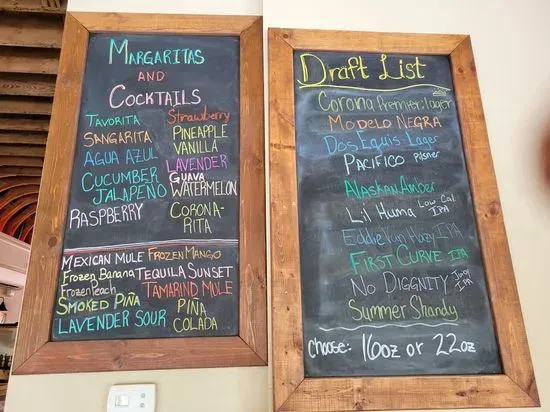 MARGARITAS
AND
COCKTAILS
TAVORITA
SANGARITA
AGUA AZUL
CUCUMBER
JALAPEÑO
RASPBERRY
Strawberry
PINEAPPLE
VANILLA
LAVENDER
GUAVA
WATERMELON
CORONA-
RITA
MEXICAN MULE FROZEN MANGO
FROZEN BANANA TEQUILA SUNSET
FROZEN PEACH TAMARIND MULE
SMOKED PIÑA PIÑA
LAVENDER SOUR COLADA
Draft List
Corona Premier: lager
MODELO NEGRA
DOS EQUIS-Lager
PACIFICO PILSNER
ALASKAN AMBER
LIL HUMA LOW CAL IPA
HAZY IPA
FIRST CURVE IPA
NO DIGGNITY IPA
SUMMER SHANDY
CHOOSE: 16oz or 22oz